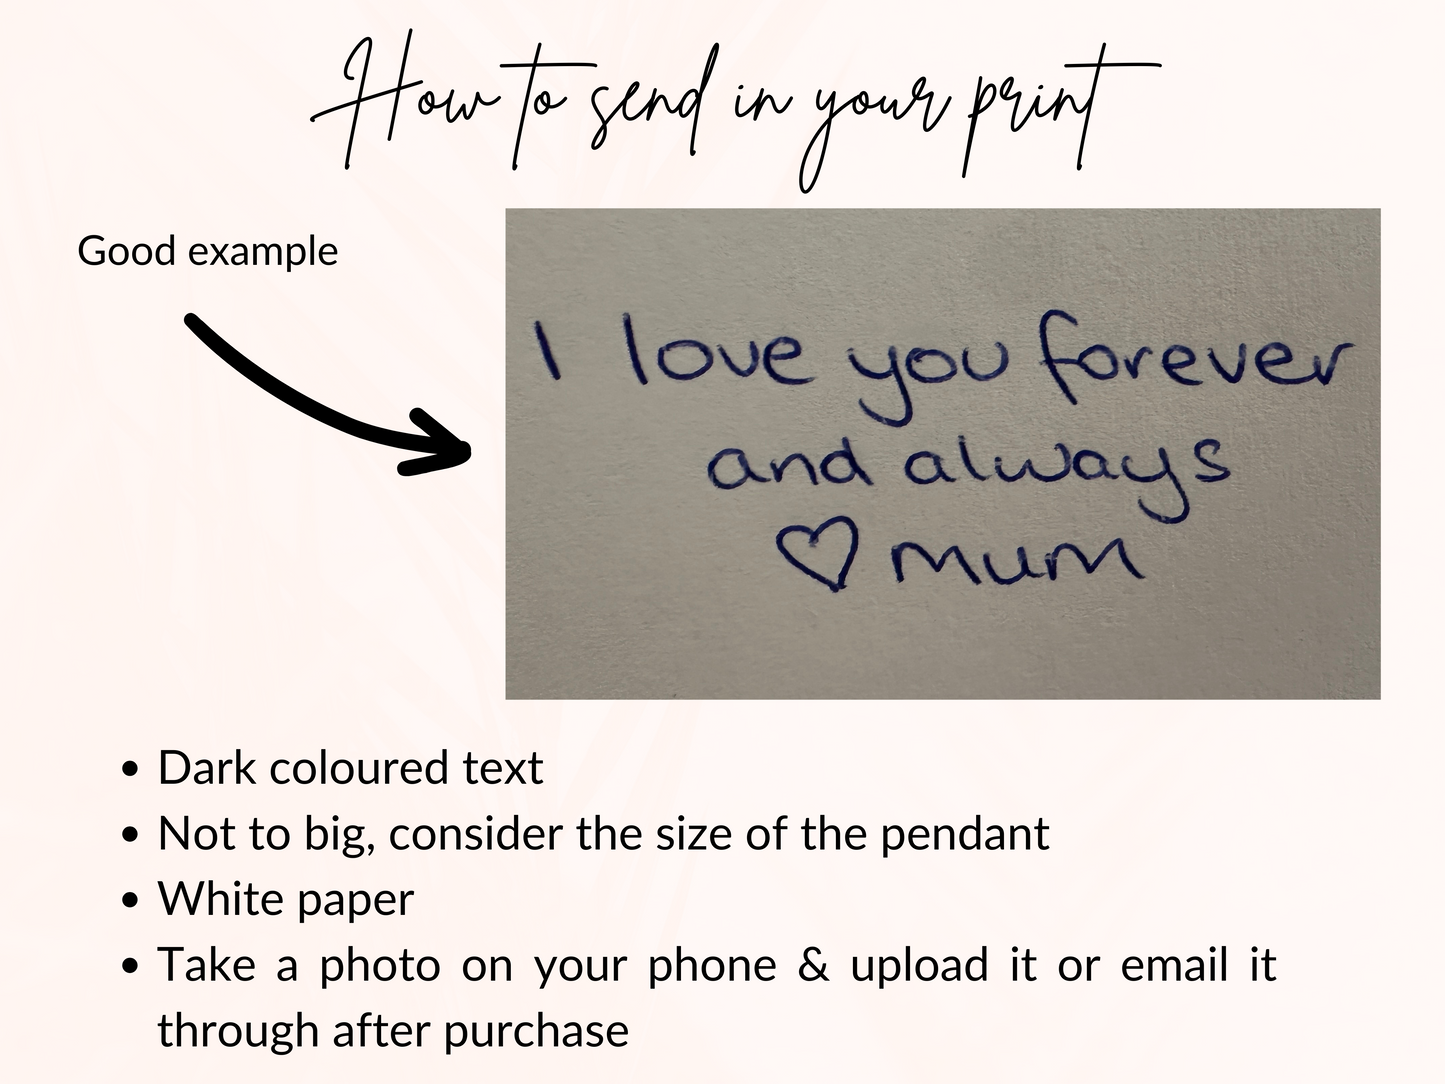 How to send in your print
Good example
I love you forever
and always
♡ mum
• Dark coloured text
• Not to big, consider the size of the pendant
• White paper
• Take a photo on your phone & upload it or email it
through after purchase